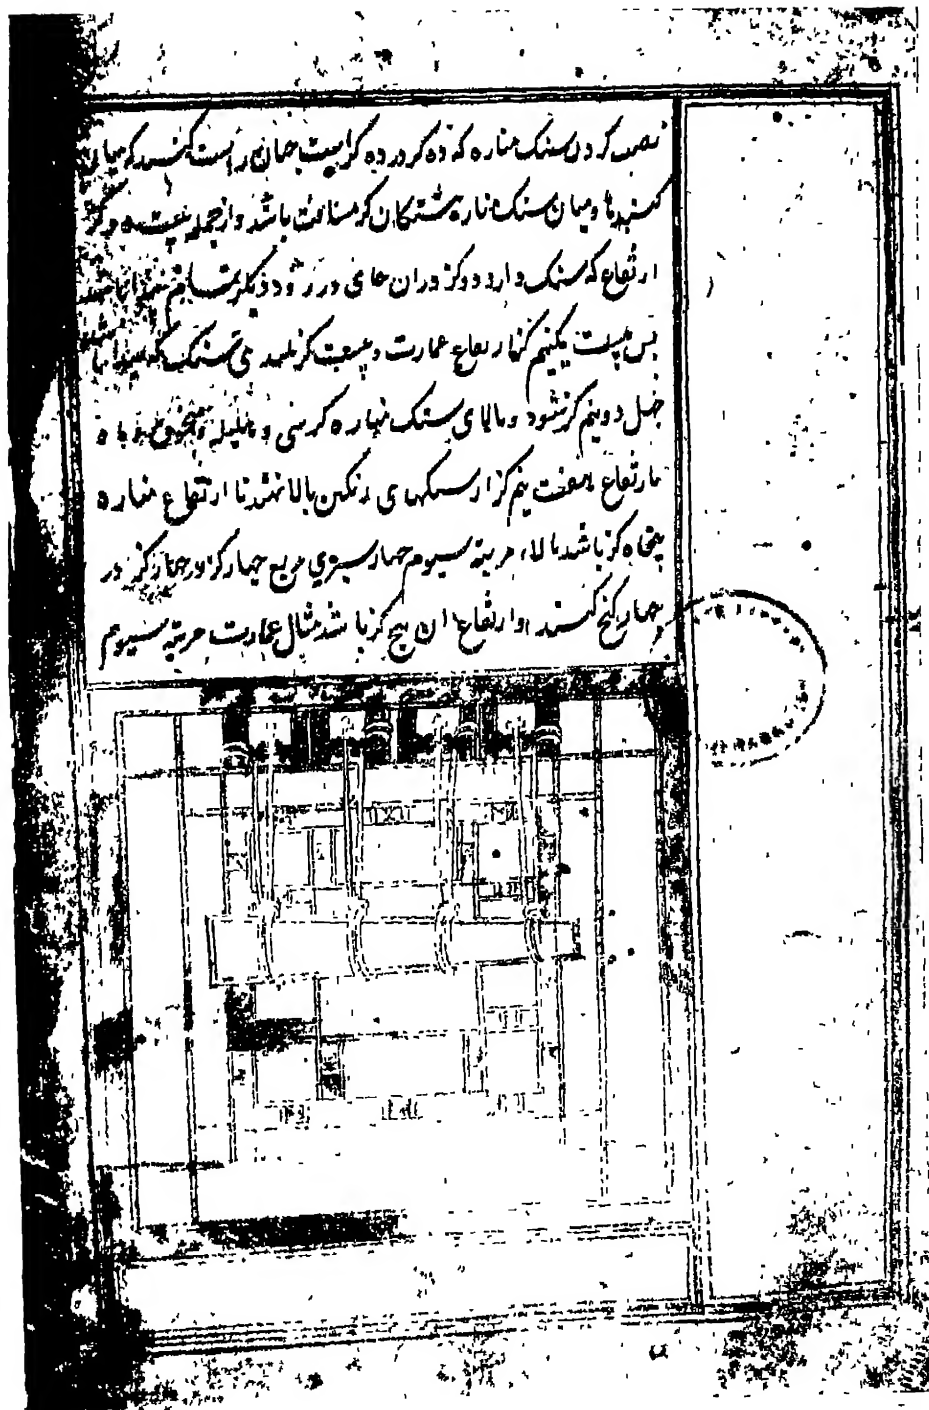 نصب کردن سنک مناره که ده کز در ده کز است چنان راست کنند که میان
کنبدها و میان سنک مناره هشتکان کز مسافت باشد و از جمله بیست و کز
ارتفاع که سنک دارد دو کز در آن جای در رود و دیکر
پس بیست یک نیم کز ارتفاع عمارت و بیست کز بلندی سنک که
چهل و دو نیم کز شود و بالای سنک مناره کرسی و
تا ارتفاع هفت نیم کز از سنکهای رنکین بالا نهند تا ارتفاع مناره
پنجاه کز باشد بالاء مرتبه سیوم چهار ستری مربع چهار کز در چهار کز در
چهار کنج کنند و ارتفاع آن پنج کز باشد مثال عمارت مرتبه سیوم